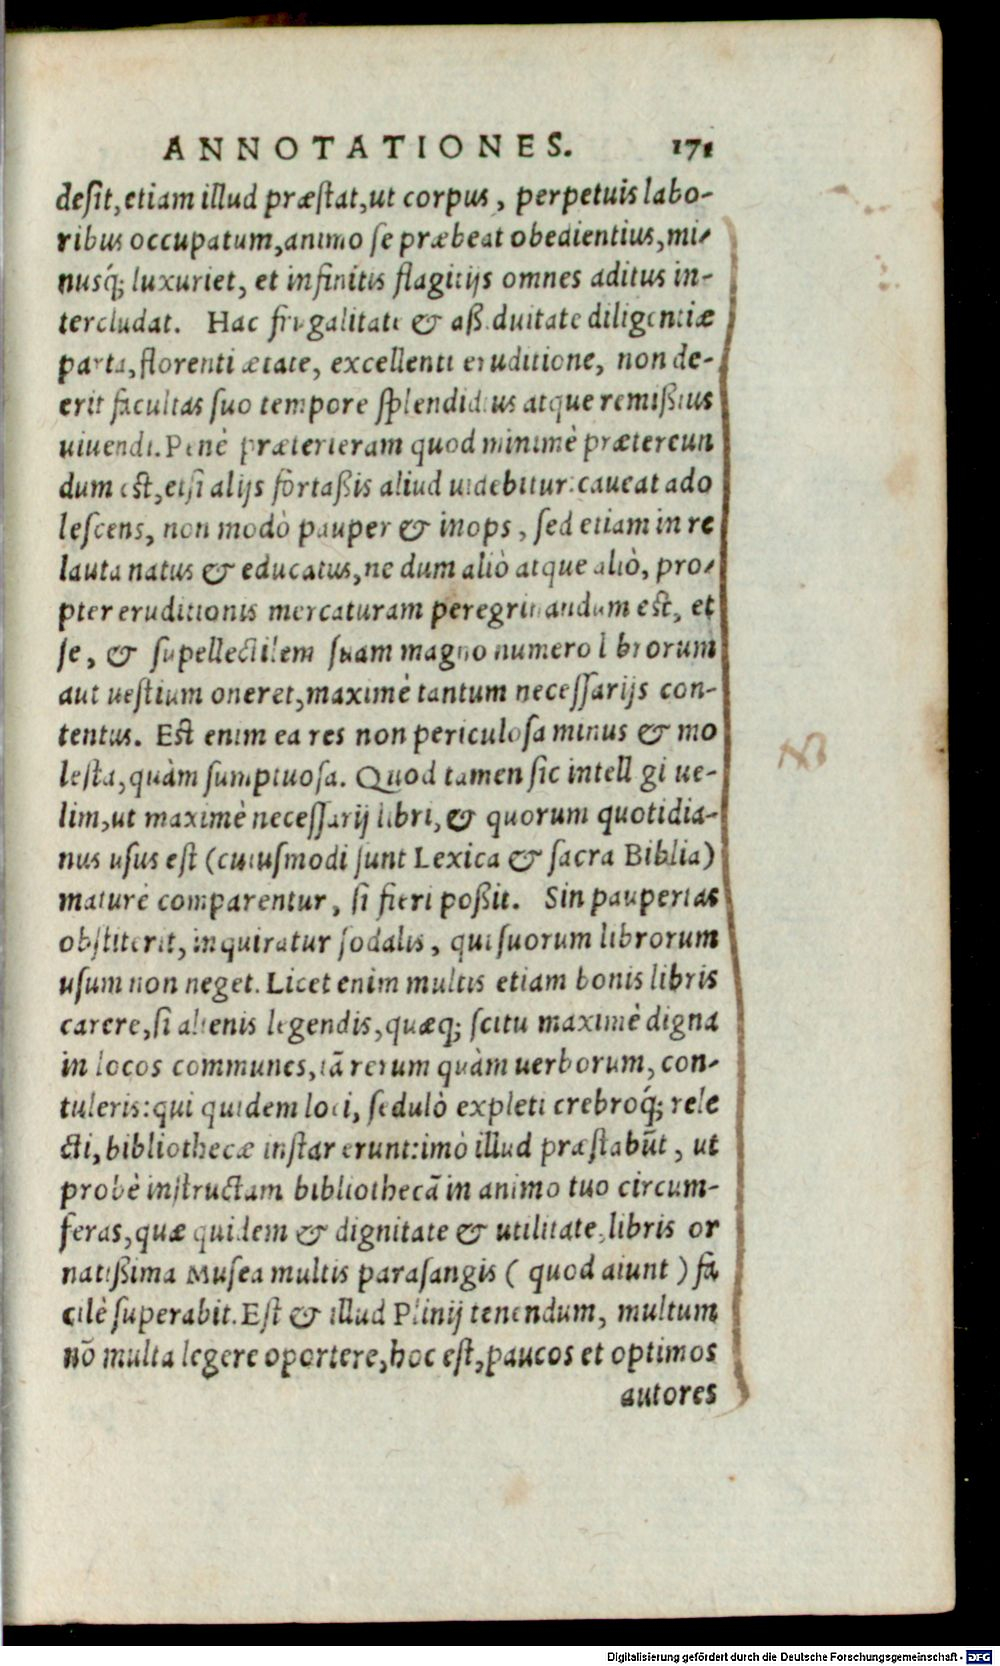 ANNOTATIONES. 171
desit, etiam illud præstat, ut corpus, perpetuis labo-
ribus occupatum, animo se præbeat obedientius, mi-
nusq́; luxuriet, et infinitis flagitijs omnes aditus in-
tercludat. Hac frugalitate & aßiduitate diligentiæ
parta, florenti ætate, excellenti eruditione, non de-
erit facultas suo tempore splendidius atque remißius
uiuendi. Penè præterieram quod minimè prætereun
dum est, etsi alijs fortaßis aliud uidebitur: caueat ado
lescens, non modò pauper & inops, sed etiam in re
lauta natus & educatus, ne dum aliò atque aliò, pro-
pter eruditionis mercaturam peregrinandum est, et
se, & supellectilem suam magno numero librorum
aut uestium oneret, maximè tantum necessarijs con-
tentus. Est enim ea res non periculosa minus & mo
lesta, quàm sumptuosa. Quod tamen sic intelligi ue-
lim, ut maximè necessarij libri, & quorum quotidia-
nus usus est (cuiusmodi sunt Lexica & sacra Biblia)
maturè comparentur, si fieri poßit. Sin paupertas
obstiterit, inquiratur sodalis, qui suorum librorum
usum non neget. Licet enim multis etiam bonis libris
carere, si alienis legendis, quæq; scitu maximè digna
in locos communes, tā rerum quàm uerborum, con-
tuleris: qui quidem loci, sedulò expleti crebroq́; rele
cti, bibliothecæ instar erunt: imò illud præstabūt, ut
probè instructam bibliothecā in animo tuo circum-
feras, quæ quidem & dignitate & utilitate, libris or
natißima Musea multis parasangis (quod aiunt) fa
cilè superabit. Est & illud Plinij tenendum, multum
nō multa legere oportere, hoc est, paucos et optimos
autores
NB
Digitalisierung gefördert durch die Deutsche Forschungsgemeinschaft - DFG